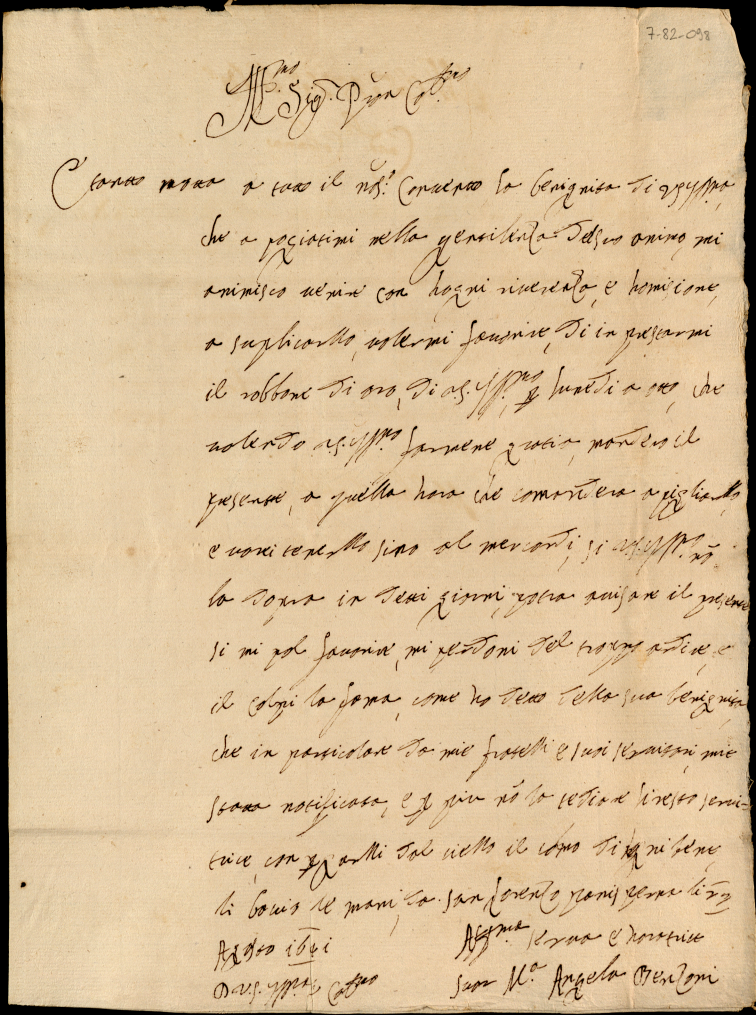 7-82-098
Ill.mo Sig.r P̃ron Col.mo
E tanto nota a tuto il nõs.o Convento la benignita di V.S. Ill.ma
che a pogiatimi nella gentilenza del suo animo, mi
animisco venire con hogni riverenza, e homisione,
a suplicarllo, volermi favorire, di in prestarmi
il robbone di oro, di V.S. Ill.ma, p lunedi a oto, che
volendo V.S. Ill.ma farmene gratia, mandero il
presente, a quella hora che comandera a pigliarllo
e vorei tenerllo sino al mercordi, si V.S. Ill.ma nõ
lo dopra in detti giorni, potra avisare il presente
si mi pol favorire, mi perdoni del troppo ardire, e
il colpi la fama, come ho detto della sua benignita
che in particolare da mie fratelli e suoi servitori, mie
stata notificata, e p piu nõ lo tediare li resto servi-
trice, con p garlli dal ciello il colmo di hogni bene,
li bacio le mani, da San Lorenzo panisperna li
Agosto
D V.S. Ill.ma Col.mo
Aff.ma serva e horatrice
Suor M.a Angela Benzoni